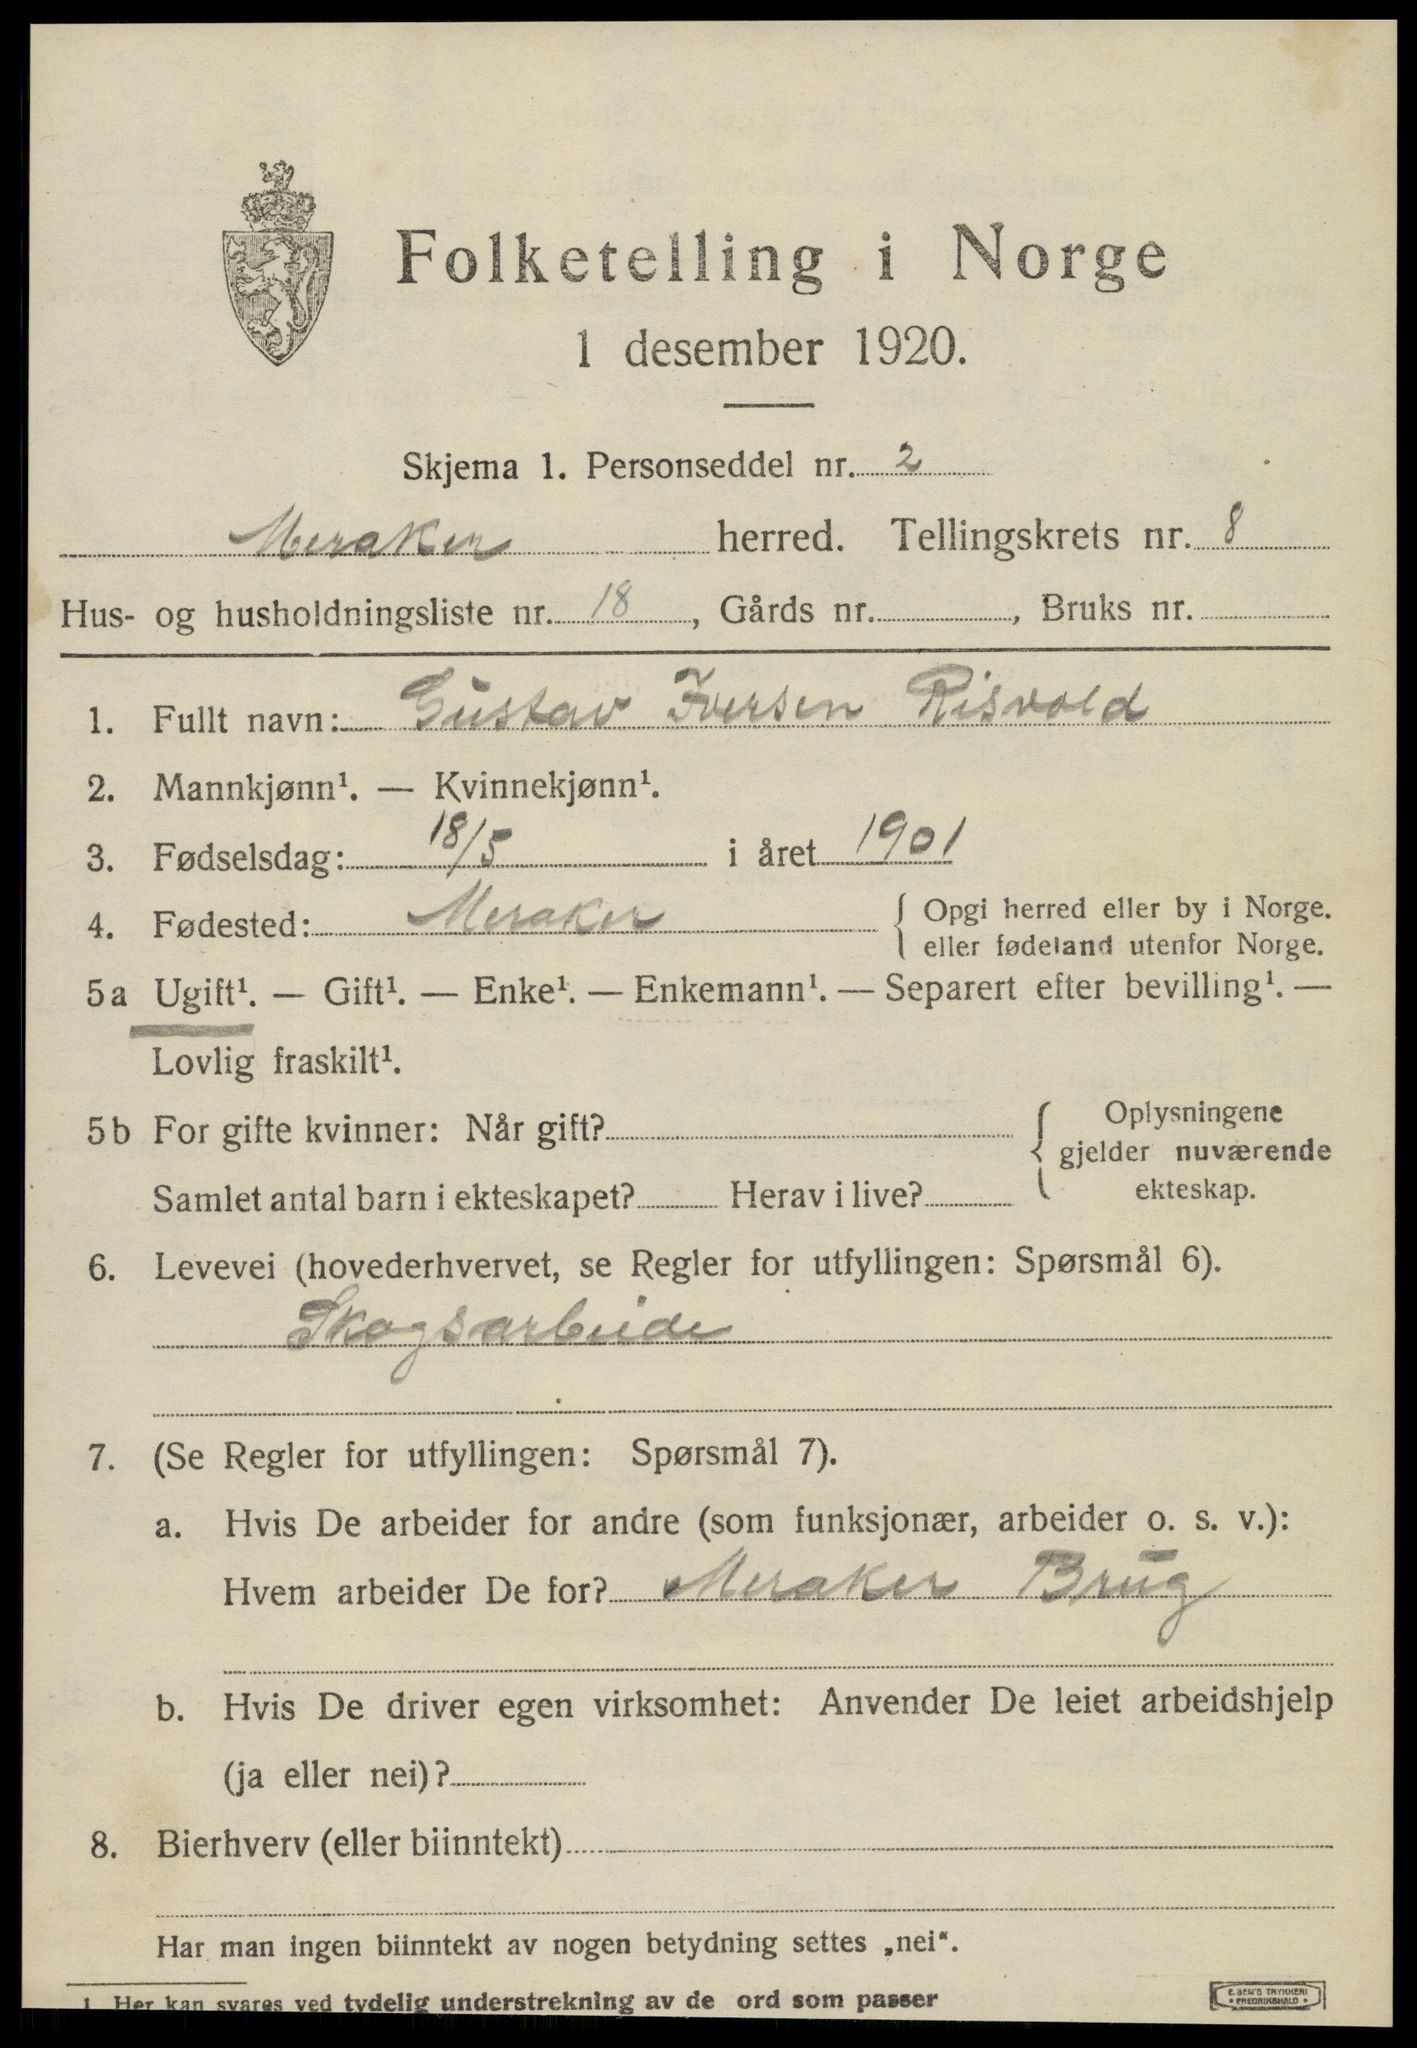 Folketelling i Norge
1 desember 1920.
Skjema 1. Personseddel nr. 2
Meraker herred. Tellingskrets nr. 8
Hus- og husholdningsliste nr. 18, Gårds nr. , Bruks nr.
1. Fullt navn: Gustav Iversen Risvold
2. Mannkjønn¹. — Kvinnekjønn¹.
3. Fødselsdag: 18/5 i året 1901
4. Fødested: Meraker { Opgi herred eller by i Norge.
eller fødeland utenfor Norge.
5a Ugift¹. — Gift¹. — Enke¹. — Enkemann¹. — Separert efter bevilling¹. —
Lovlig fraskilt¹.
5b For gifte kvinner: Når gift? { Oplysningene
gjelder nuværende
Samlet antal barn i ekteskapet? Herav i live? ekteskap.
6. Levevei (hovederhvervet, se Regler for utfyllingen: Spørsmål 6).
Skogsarbeide
7. (Se Regler for utfyllingen: Spørsmål 7).
a. Hvis De arbeider for andre (som funksjonær, arbeider o. s. v.):
Hvem arbeider De for? Meraker Brug
b. Hvis De driver egen virksomhet: Anvender De leiet arbeidshjelp
(ja eller nei)?
8. Bierhverv (eller biinntekt)
Har man ingen biinntekt av nogen betydning settes „nei“.
1. Her kan svares ved tydelig understrekning av de ord som passer
E. SEM'S TRYKKERI
• FREDRIKSHALD •